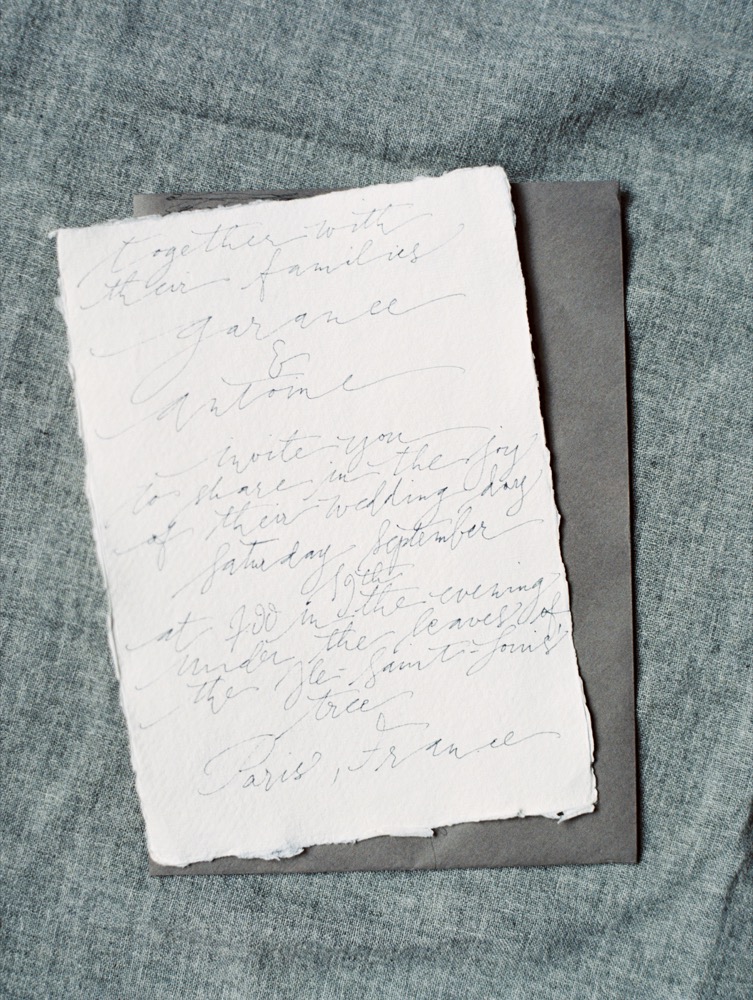 together with
their families
garance
&
antoine
invite you
to share in the joy
of their wedding day
saturday september
19th
at 7:00 in the evening
under the leaves of
the Ile-Saint-Louis
tree
Paris, France